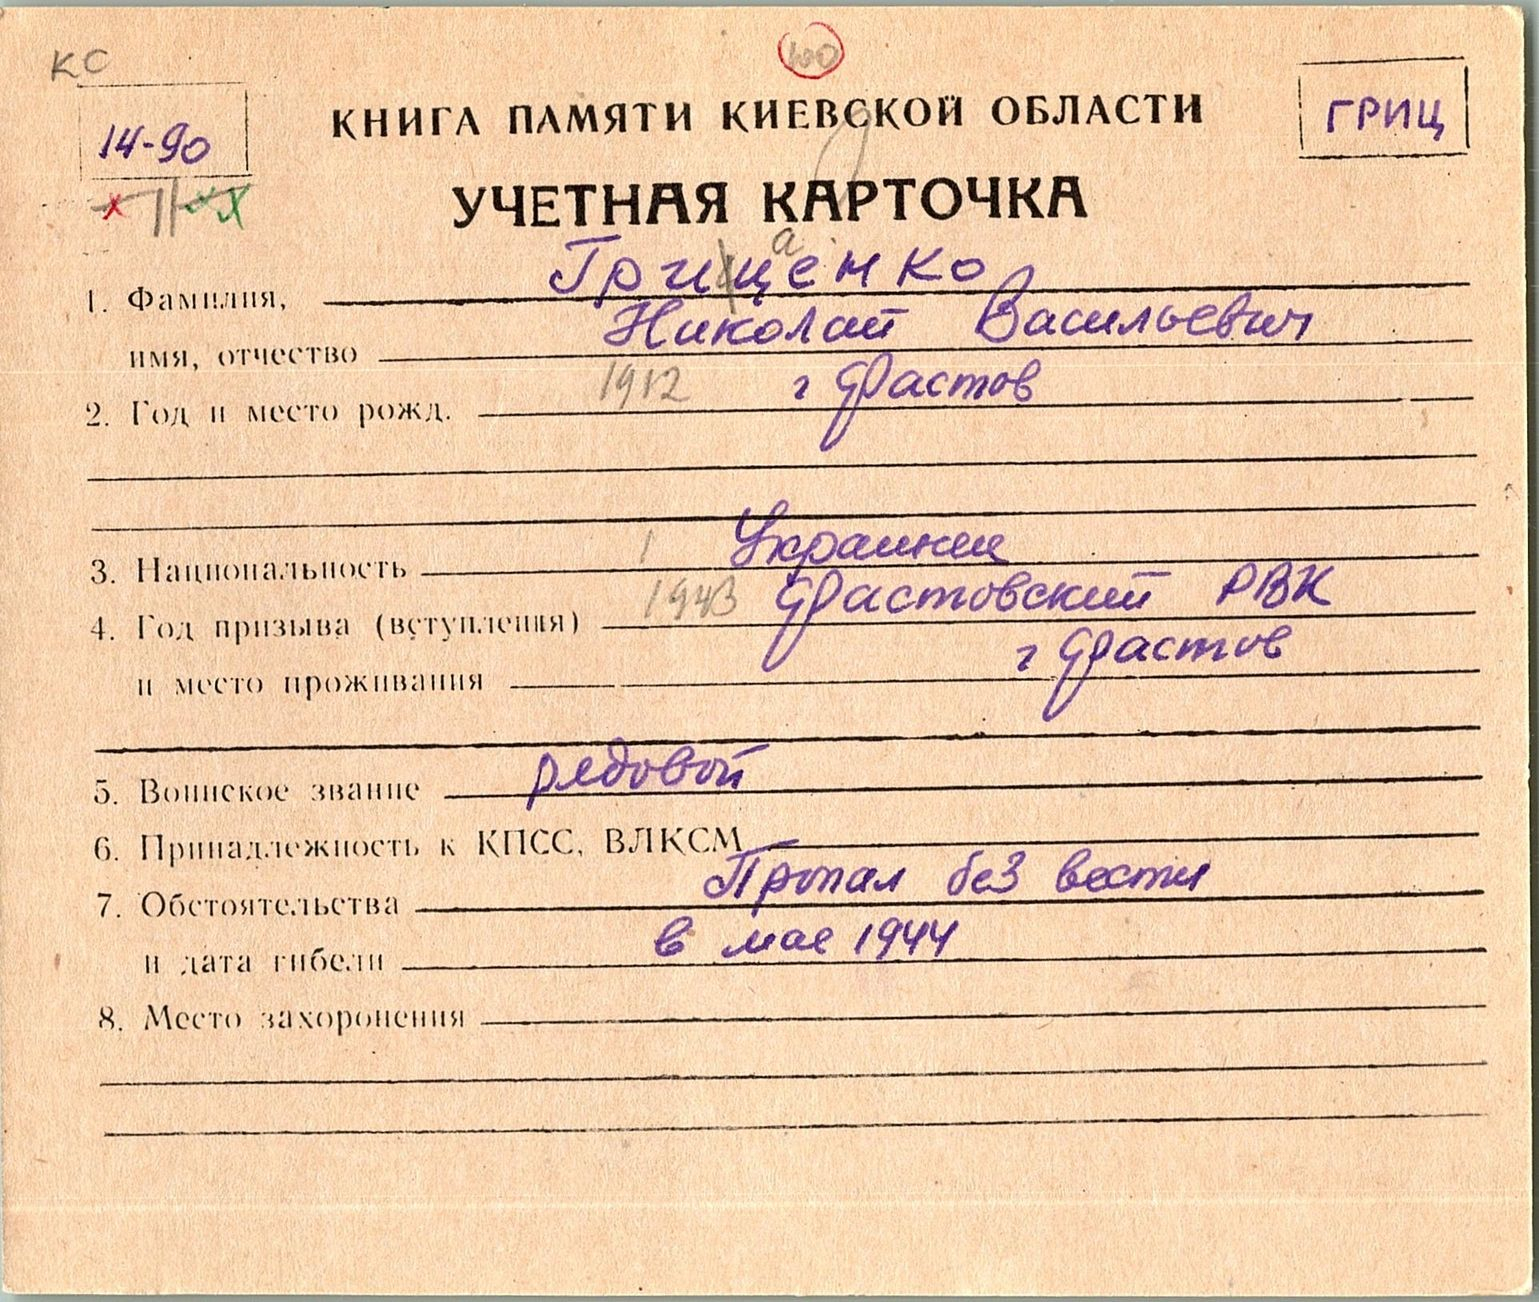 КС
100
14-90
КНИГА ПАМЯТИ КИЕВСКОЙ ОБЛАСТИ
ГРИЦ
УЧЕТНАЯ КАРТОЧКА
а
1. Фамилия, Грициенко
имя, отчество Николай Васильевич
2. Год и место рожд. 1912 г Фастов
3. Национальность Украинец
4. Год призыва (вступления) 1943 Фастовский РВК
и место проживания г Фастов
5. Воинское звание рядовой
6. Принадлежность к КПСС, ВЛКСМ
7. Обстоятельства Пропал без вести
и дата гибели в мае 1944
8. Место захоронения